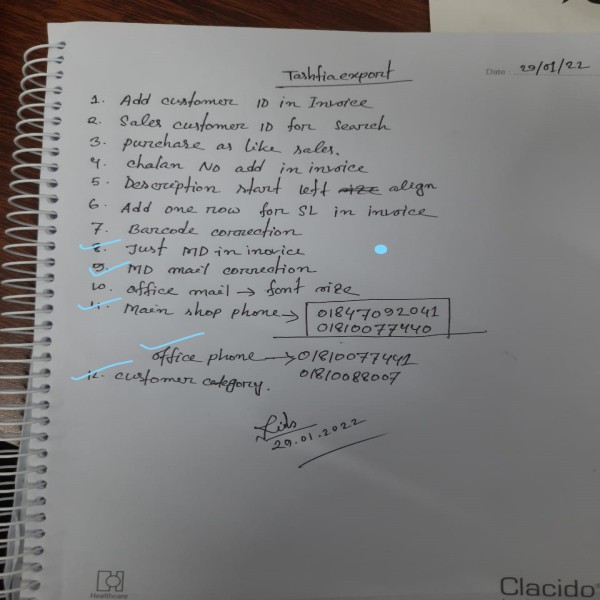 Tashfia export
Date 29/01/22
1. Add customer ID in Invoice
2. Sales customer ID for search
3. purchase as like sales.
4. chalan No add in invoice
5. Description start left align
6. Add one row for SL in invoice
7. Barcode correction
8. Just MD in invoice
9. MD mail correction
10. office mail → font size
11. Main shop phone → 01847092041
01810077440
office phone → 01810077441
01810088007
12. customer category.
29.01.2022
Healthcare
Clacido